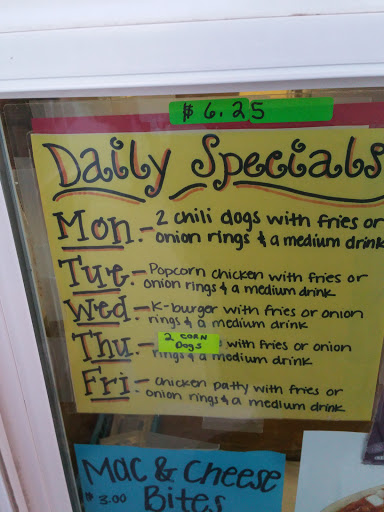 $6.25
Daily Specials
Mon.- 2 chili dogs with fries or
onion rings & a medium drink
Tue.- Popcorn chicken with fries or
onion rings & a medium drink
Wed.- K-burger with fries or onion
rings & a medium drink
Thu.- 2 CORN Dogs with fries or onion
rings & a medium drink
Fri- chicken patty with fries or
onion rings & a medium drink
Mac & Cheese
$3.00 Bites